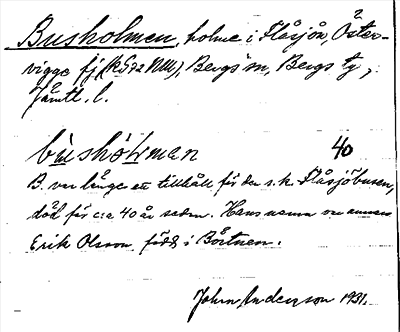 Busholmen, holme i Flåsjön, Öster-
vigge fj (kS 72 NM), Bergs sn, Bergs tg,
Jämtl. l.
bùshòḷman 40
B. var länge ett tillhåll för den s.k. Flåsjöbusen,
död för c:a 40 år sedan. Hans namn var annars
Erik Olsson, född i Börtnen.
John Anderson 1931.